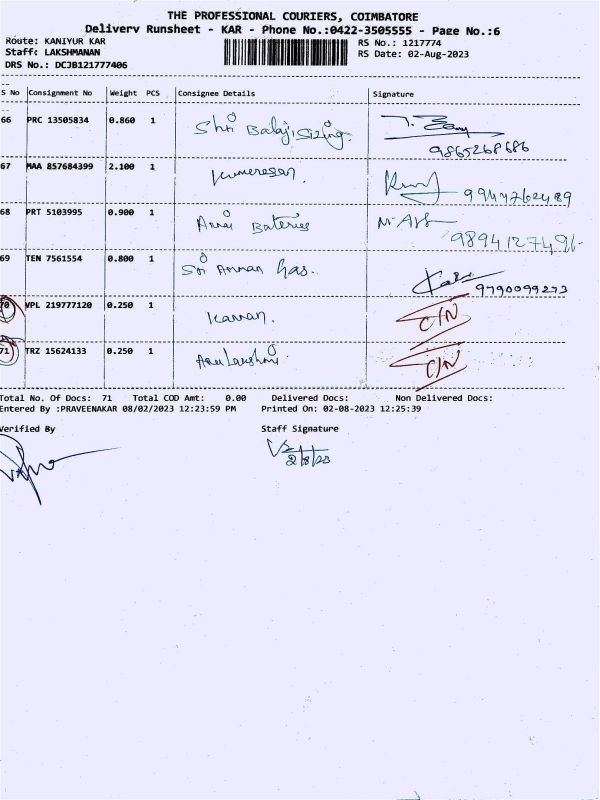 THE PROFESSIONAL COURIERS, COIMBATORE
Delivery Runsheet - KAR - Phone No.:0422-3505555 - Page No.:6
Route: KANIYUR KAR
RS No.: 1217774
Staff: LAKSHMANAN
RS Date: 02-Aug-2023
DRS No.: DCJB121777406
S No Consignment No Weight PCS Consignee Details Signature
66 PRC 13505834 0.860 1 Shri Balaji Sizing.
9865268686
67 MAA 857684399 2.100 1 Kumeresan.
9947762489
68 PRT 5103995 0.900 1 Annai Bateries
9894127496-
69 TEN 7561554 0.800 1 Sri Amman Gas.
9790099273
70 VPL 219777120 0.250 1 Kannan. C/N
71 TRZ 15624133 0.250 1 Arulakshmi C/N
Total No. Of Docs: 71 Total COD Amt: 0.00 Delivered Docs: Non Delivered Docs:
Entered By :PRAVEENAKAR 08/02/2023 12:23:59 PM Printed On: 02-08-2023 12:25:39
Verified By Staff Signature
2/8/23